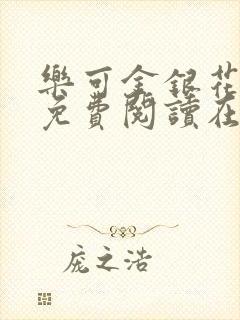 樂可金銀花
免費閱讀在
庞之浩